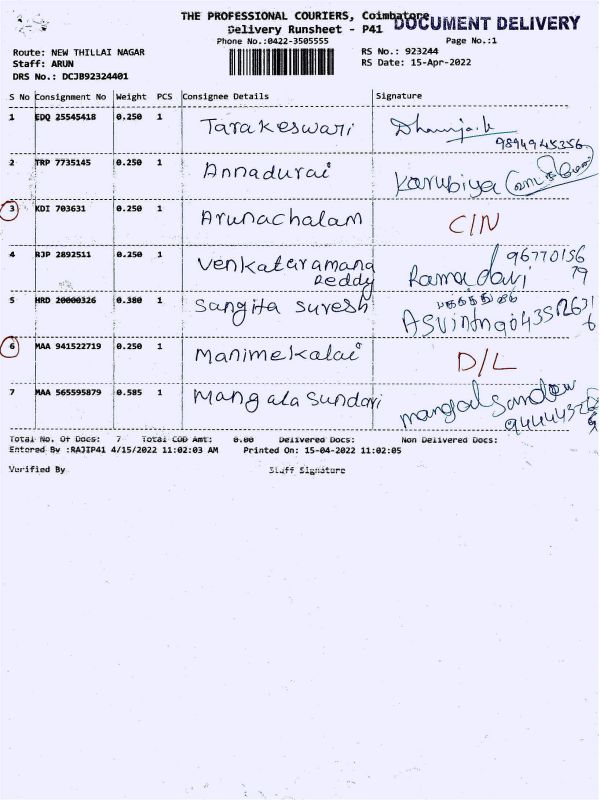 THE PROFESSIONAL COURIERS, Coimbatore
DOCUMENT DELIVERY
Delivery Runsheet - P41
Phone No.:0422-3505555
Page No.:1
Route: NEW THILLAI NAGAR
RS No.: 923244
Staff: ARUN
RS Date: 15-Apr-2022
DRS No.: DCJB92324401
S No Consignment No Weight PCS Consignee Details Signature
1 EDQ 25545418 0.250 1 Tarakeswari
9894945356
2 TRP 7735145 0.250 1 Annadurai Karubiya
3 KDI 703631 0.250 1 Arunachalam C/N
4 RJP 2892511 0.250 1 Venkataramana Reddy Ramadavi 9677015679
5 HRD 20000326 0.380 1 Sangita Suresh
6 MAA 941522719 0.250 1 Manimekalai D/L
7 MAA 565595879 0.585 1 Mangala Sundari
Total No. Of Docs: 7 Total COD Amt: 0.00 Delivered Docs: Non Delivered Docs:
Entered By :RAJIP41 4/15/2022 11:02:03 AM Printed On: 15-04-2022 11:02:05
Verified By Staff Signature